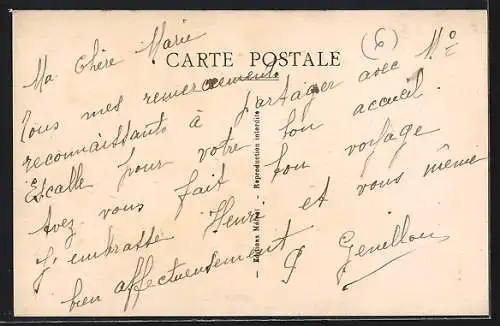 CARTE POSTALE
6
Ma Chère Marie
Tous mes remerciements
reconnaissants à partager avec Mo
Escalle pour votre bon accueil.
Avez vous fait bon voyage
J'embrasse Henri et vous même
bien affectueusement
Editions - Reproduction interdite